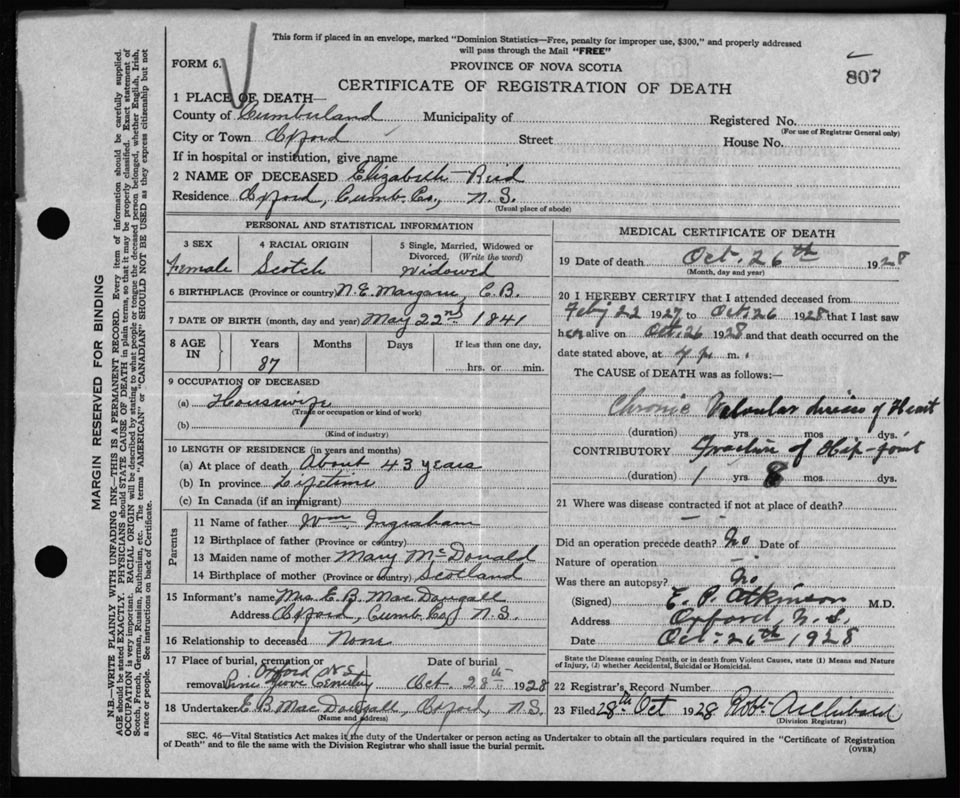 This form if placed in an envelope, marked "Dominion Statistics—Free, penalty for improper use, $300," and properly addressed
will pass through the Mail "FREE"
FORM 6.
PROVINCE OF NOVA SCOTIA
807
CERTIFICATE OF REGISTRATION OF DEATH
1 PLACE OF DEATH—
County of Cumberland Municipality of Registered No.
(For use of Registrar General only)
City or Town Oxford Street House No.
If in hospital or institution, give name
2 NAME OF DECEASED Elizabeth Reid
Residence Oxford, Cumb. Co., N.S.
(Usual place of abode)
PERSONAL AND STATISTICAL INFORMATION
3 SEX 4 RACIAL ORIGIN 5 Single, Married, Widowed or
Divorced. (Write the word)
Female Scotch Widowed
6 BIRTHPLACE (Province or country) N.E. Margaree, C.B.
7 DATE OF BIRTH (month, day and year) May 22nd 1841
8 AGE IN Years Months Days If less than one day,
87 hrs. or min.
9 OCCUPATION OF DECEASED
(a) Housewife
(Trade or occupation or kind of work)
(b)
(Kind of industry)
10 LENGTH OF RESIDENCE (in years and months)
(a) At place of death, About 43 years
(b) In province Lifetime
(c) In Canada (if an immigrant)
Parents
11 Name of father Wm Ingraham
12 Birthplace of father (Province or country)
13 Maiden name of mother Mary McDonald
14 Birthplace of mother (Province or country) Scotland
15 Informant's name Mrs. E. B. MacDougall
Address Oxford, Cumb. Co, N.S.
16 Relationship to deceased None
17 Place of burial, cremation or Date of burial
Oxford N.S.
removal Pine Grove Cemetery Oct. 28th 1928
18 Undertaker E. B. MacDougall, Oxford, N.S.
(Name and address)
MEDICAL CERTIFICATE OF DEATH
19 Date of death Oct. 26th 1928
(Month, day and year)
20 I HEREBY CERTIFY that I attended deceased from
Feby 22 1927 to Oct. 26 1928 that I last saw
her alive on Oct. 26 1928 and that death occurred on the
date stated above, at 4 p. m.
The CAUSE of DEATH was as follows:—
Chronic Valvular disease of Heart
(duration) yrs. mos. dys.
CONTRIBUTORY Fracture of Hip-joint
(duration) 1 yrs 8 mos. dys.
21 Where was disease contracted if not at place of death?
Did an operation precede death? No Date of
Nature of operation
Was there an autopsy? No
(Signed) E. P. Atkinson M.D.
Address Oxford, N.S.
Date Oct. 26th, 1928
State the Disease causing Death, or in death from Violent Causes, state (1) Means and Nature
of Injury, (2) whether Accidental, Suicidal or Homicidal.
22 Registrar's Record Number
23 Filed 28th Oct 1928 Robt. Archibald
(Division Registrar)
SEC. 46—Vital Statistics Act makes it the duty of the Undertaker or person acting as Undertaker to obtain all the particulars required in the "Certificate of Registration
of Death" and to file the same with the Division Registrar who shall issue the burial permit.
(OVER)
MARGIN RESERVED FOR BINDING
N.B.—WRITE PLAINLY WITH UNFADING INK—THIS IS A PERMANENT RECORD. Every item of information should be carefully supplied.
AGE should be stated EXACTLY. PHYSICIANS should STATE CAUSE OF DEATH in plain terms, so that it may be properly classified. Exact statement of
OCCUPATION is very important. RACIAL ORIGIN will be described by stating to what people or tongue the deceased person belonged, whether English, Irish,
Scotch, French, German, Russian, Ruthenian, etc. The terms "AMERICAN" or "CANADIAN" SHOULD NOT BE USED as they express citizenship but not
a race or people. See instructions on back of Certificate.